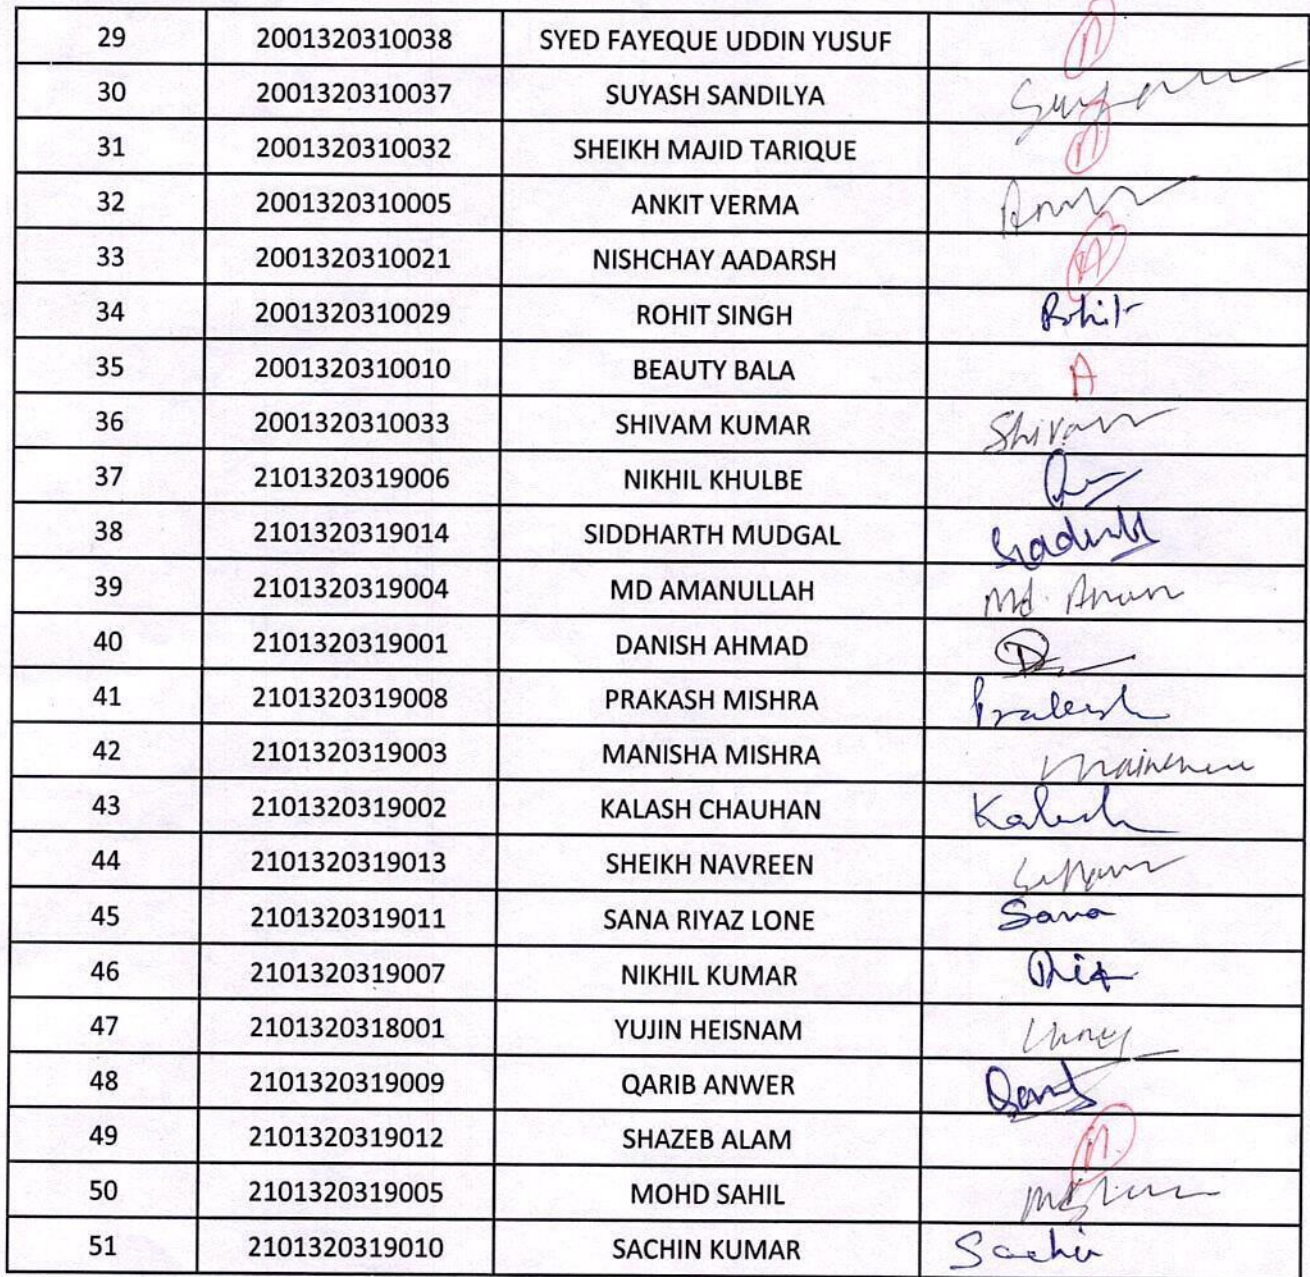 29 2001320310038 SYED FAYEQUE UDDIN YUSUF A
30 2001320310037 SUYASH SANDILYA
31 2001320310032 SHEIKH MAJID TARIQUE A
32 2001320310005 ANKIT VERMA
33 2001320310021 NISHCHAY AADARSH A
34 2001320310029 ROHIT SINGH Rohit
35 2001320310010 BEAUTY BALA A
36 2001320310033 SHIVAM KUMAR Shivam
37 2101320319006 NIKHIL KHULBE
38 2101320319014 SIDDHARTH MUDGAL
39 2101320319004 MD AMANULLAH Md. Aman
40 2101320319001 DANISH AHMAD
41 2101320319008 PRAKASH MISHRA Prakash
42 2101320319003 MANISHA MISHRA
43 2101320319002 KALASH CHAUHAN Kalash
44 2101320319013 SHEIKH NAVREEN
45 2101320319011 SANA RIYAZ LONE Sana
46 2101320319007 NIKHIL KUMAR
47 2101320318001 YUJIN HEISNAM
48 2101320319009 QARIB ANWER
49 2101320319012 SHAZEB ALAM A
50 2101320319005 MOHD SAHIL
51 2101320319010 SACHIN KUMAR Sachin